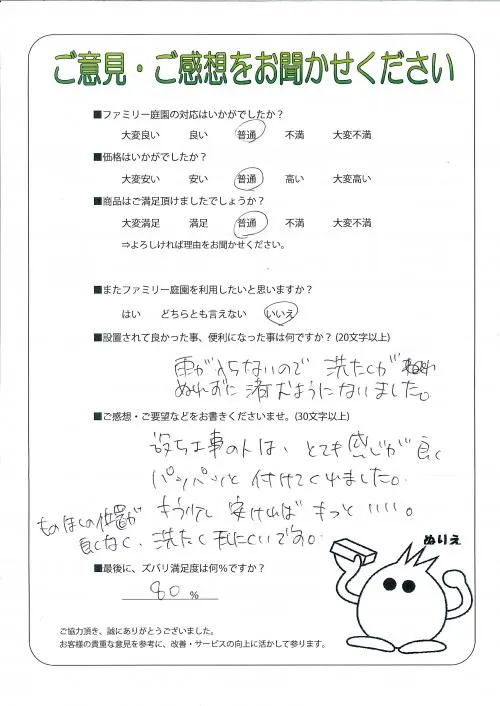 ご意見・ご感想をお聞かせください
■ファミリー庭園の対応はいかがでしたか?
大変良い 良い 普通 不満 大変不満
■価格はいかがでしたか?
大変安い 安い 普通 高い 大変高い
■商品はご満足頂けましたでしょうか?
大変満足 満足 普通 不満 大変不満
⇒よろしければ理由をお聞かせください。
■またファミリー庭園を利用したいと思いますか?
はい どちらとも言えない いいえ
■設置されて良かった事、便利になった事は何ですか? (20文字以上)
雨が入らないので 洗たくが
ぬれずに済むようになりました。
■ご感想・ご要望などをお書きくださいませ。(30文字以上)
設ち工事の人は、とても感じが良く
パンパンと付けてくれました。
もう少し安ければもっといい。
ものほしの位置が
良くなく、洗たくしにくいです。
ぬりえ
■最後に、ズバリ満足度は何%ですか?
80 %
ご協力頂き、誠にありがとうございました。
お客様の貴重な意見を参考に、改善・サービスの向上に活かして参ります。